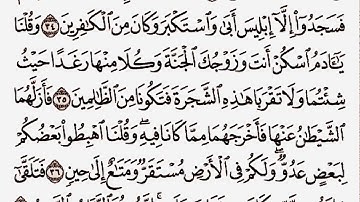 فَسَجَدُوٓا۟ إِلَّآ إِبْلِيسَ أَبَىٰ وَٱسْتَكْبَرَ وَكَانَ مِنَ ٱلْكَٰفِرِينَ ٣٤ وَقُلْنَا
يَٰٓـَٔادَمُ ٱسْكُنْ أَنتَ وَزَوْجُكَ ٱلْجَنَّةَ وَكُلَا مِنْهَا رَغَدًا حَيْثُ
شِئْتُمَا وَلَا تَقْرَبَا هَٰذِهِ ٱلشَّجَرَةَ فَتَكُونَا مِنَ ٱلظَّٰلِمِينَ ٣٥ فَأَزَلَّهُمَا
ٱلشَّيْطَٰنُ عَنْهَا فَأَخْرَجَهُمَا مِمَّا كَانَا فِيهِ ۖ وَقُلْنَا ٱهْبِطُوا۟ بَعْضُكُمْ
لِبَعْضٍ عَدُوٌّ ۖ وَلَكُمْ فِى ٱلْأَرْضِ مُسْتَقَرٌّ وَمَتَٰعٌ إِلَىٰ حِينٍ ٣٦ فَتَلَقَّىٰٓ